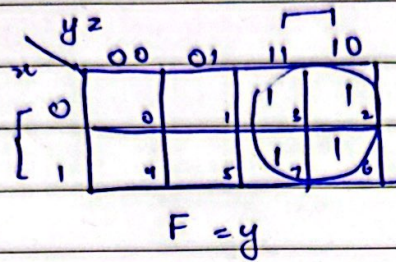 yz
x 00 01 11 10
0 0 1 1 3 1 2
1 4 5 1 7 1 6
F = y